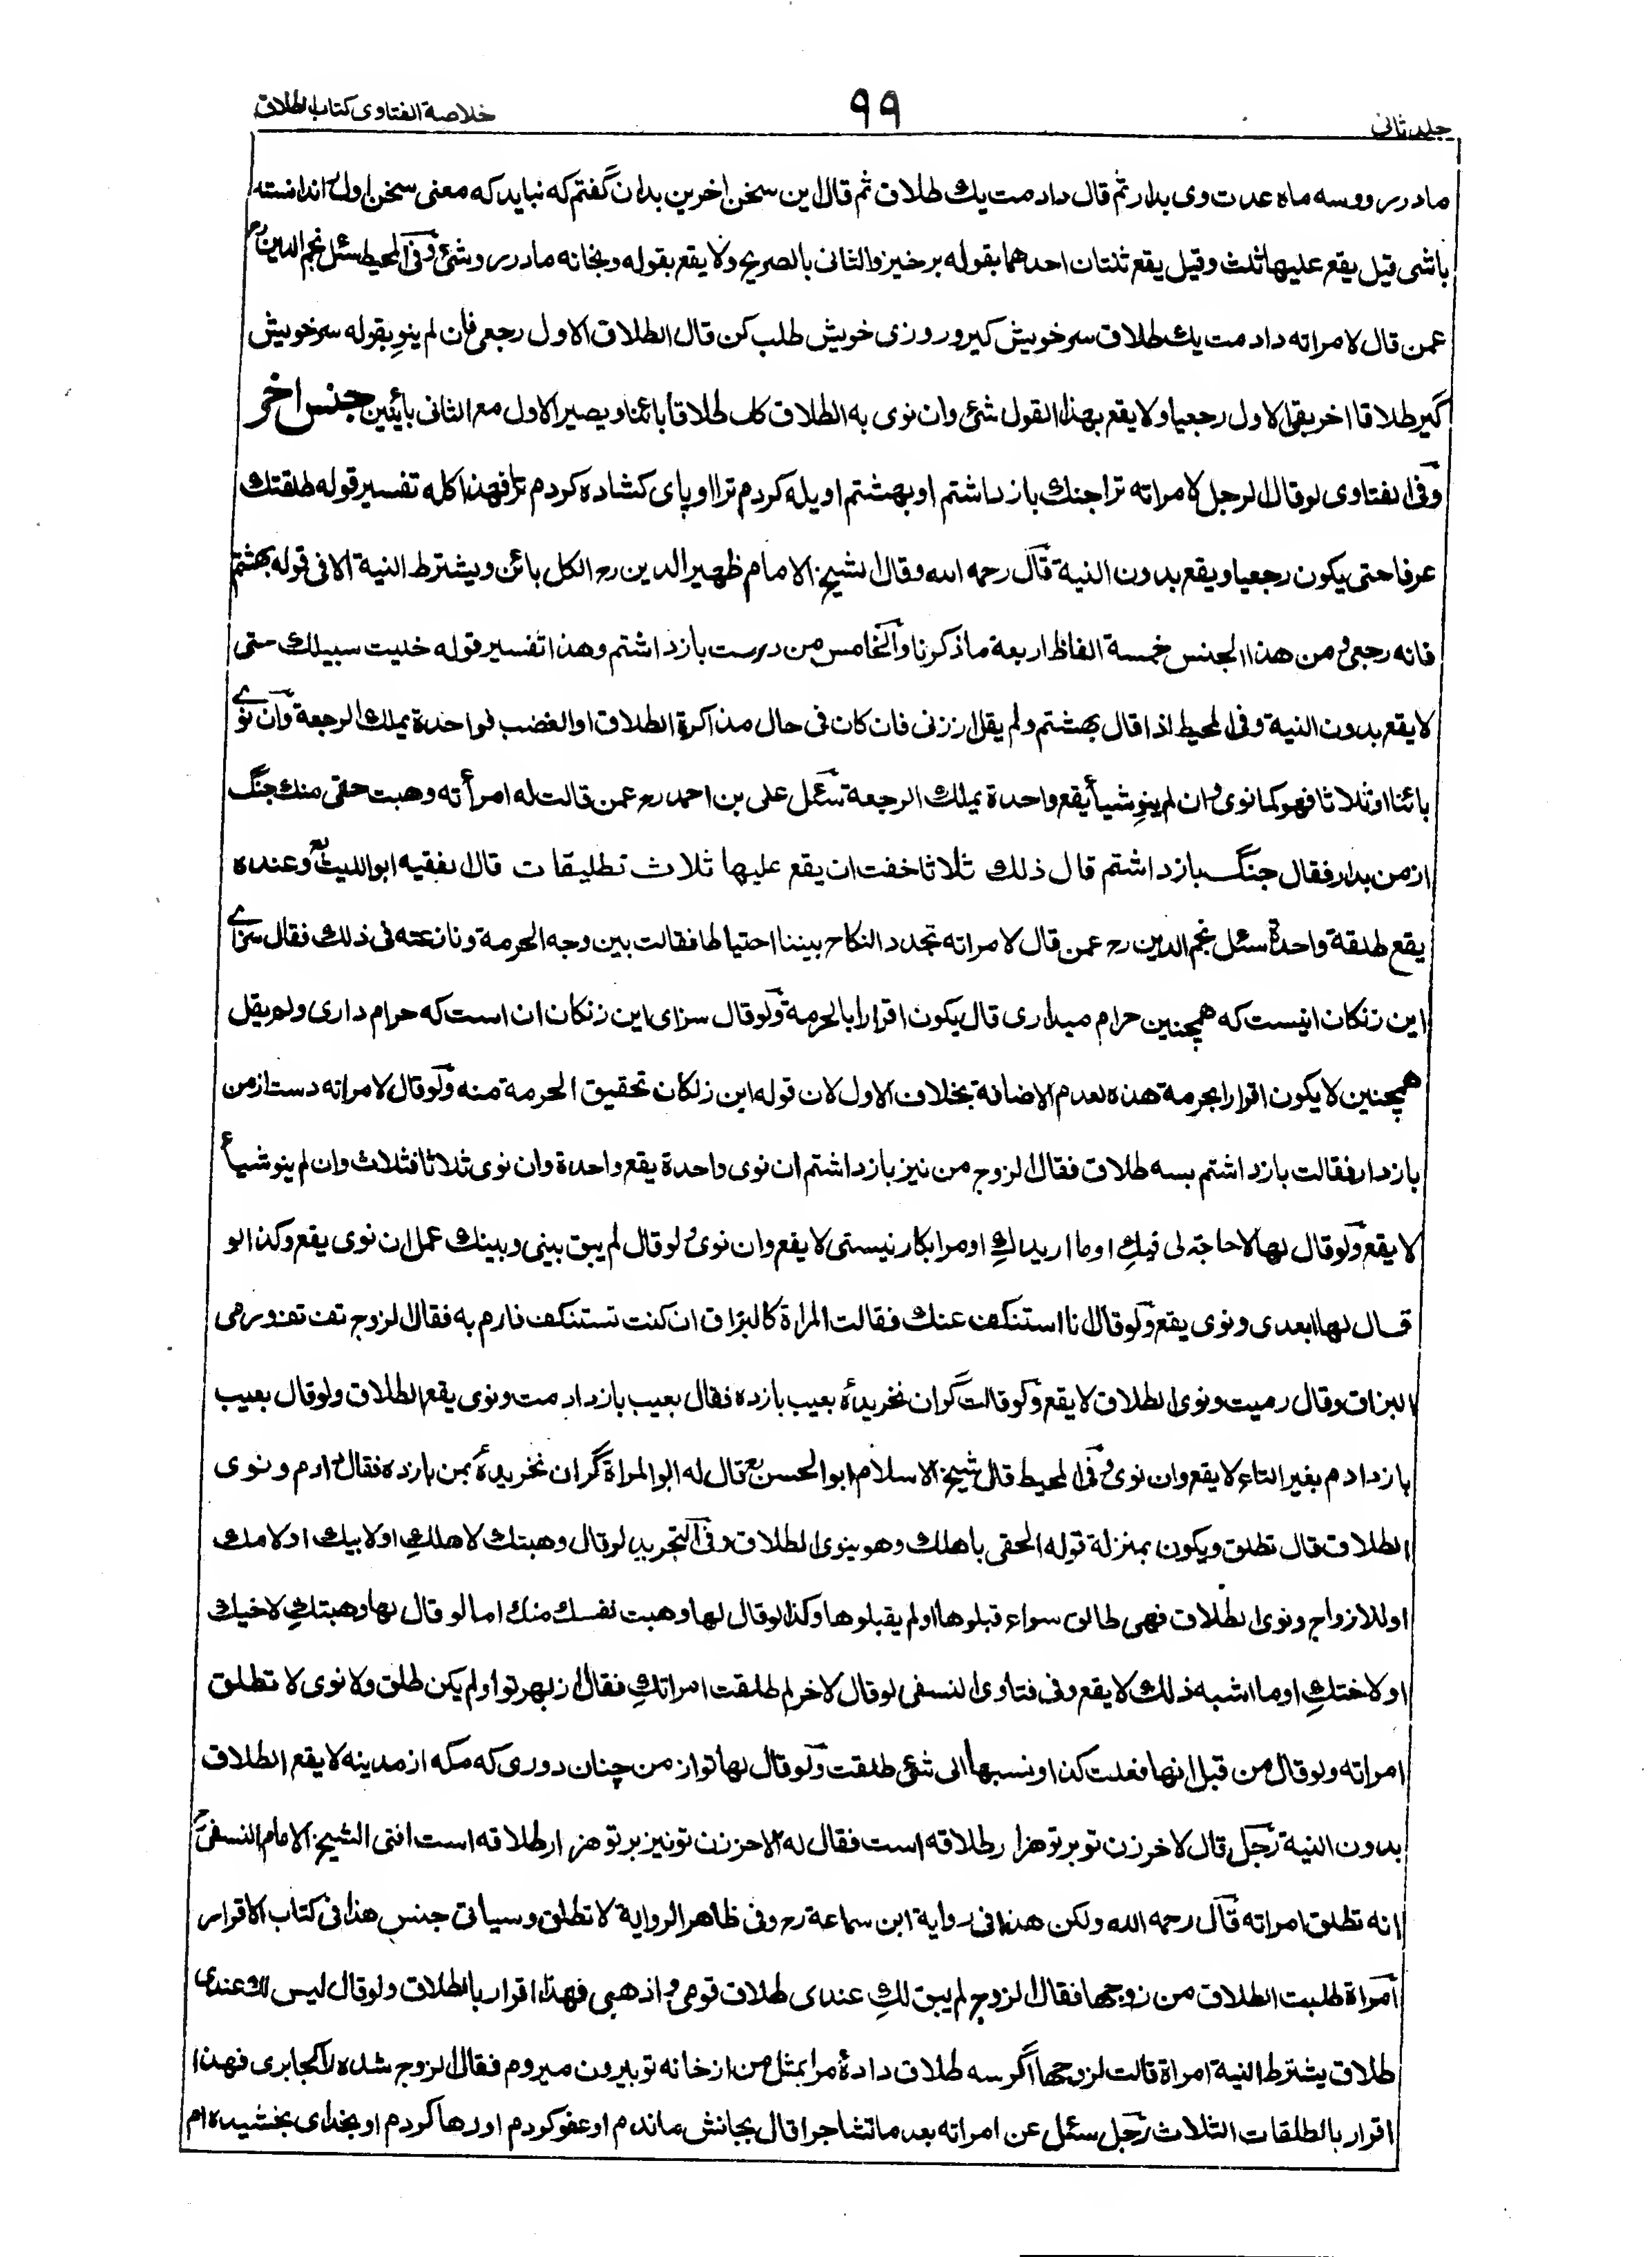 جلد ثانی
۹۹
خلاصة الفتاوی کتاب الطلاق
مادر رو وسه ماه عدت وی بدار ثم قال دادمت یک طلاق ثم قال این سخن اخرین بدان گفتم که نباید که معنی سخن اول ندانسته
باشی قیل یقع علیها ثلث وقیل یقع ثنتان احدهما بقوله برخیز والثانی بالصریح ولا یقع بقوله وبخانه مادر رو شئ وفی المحیط سئل نجم الدین رح
عمن قال لامراته دادمت یک طلاق سر خویش گیر وروزی خویش طلب کن قال الطلاق الاول رجعی فان لم ینو بقوله سر خویش
گیر طلاقا اخر بقی الاول رجعیا ولا یقع بهذا القول شئ وان نوی به الطلاق کان طلاقا بائنا ویصیر الاول مع الثانی بائنین جنس اخر
وفی الفتاوی لو قال الرجل لامراته ترا چنگ باز داشتم او بهشتم او یله کردم ترا او پای کشاده کردم ترا فهذا کله تفسیر قوله طلقتک
عرفا حتی یکون رجعیا ویقع بدون النیة قال رحمه الله وقال الشیخ الامام ظهیر الدین رح الکل بائن ویشترط النیة الا فی قوله بهشتم
فانه رجعی ومن هذا الجنس خمسة الفاظ اربعة ما ذکرنا والخامس من دست باز داشتم وهذا تفسیر قوله خلیت سبیلک حتی
لا یقع بدون النیة وفی المحیط اذا قال بهشتم ولم یقل از زنی فان کان فی حال مذاکرة الطلاق او الغضب فواحدة یملک الرجعة وان نوی
بائنا او ثلاثا فهو کما نوی وان لم ینو شیأ یقع واحدة یملک الرجعة سئل علی بن احمد رح عمن قالت له امرأته وهبت حقی منک چنگ
از من بدار فقال چنگ باز داشتم قال ذلک ثلاثا خفت ان یقع علیها ثلاث تطلیقات قال الفقیه ابو اللیث رح وعنده
یقع طلقة واحدة سئل نجم الدین رح عمن قال لامراته تجدد النکاح بیننا احتیاطا فقالت بین وجه الحرمة ونازعته فی ذلک فقال سزای
این زنکان اینست که همچنین حرام میداری قال یکون اقرارا بالحرمة ولو قال سزای این زنکان ان است که حرام داری ولم یقل
همچنین لا یکون اقرارا بحرمة هذه لعدم الاضافة بخلاف الاول لان قوله این زنکان تحقیق الحرمة منه ولو قال لامراته دست از من
باز دار فقالت باز داشتم بسه طلاق فقال الزوج من نیز باز داشتم ان نوی واحدة یقع واحدة وان نوی ثلاثا فثلاث وان لم ینو شیأ
لا یقع ولو قال لها لا حاجة لی فیکِ او ما اریدکِ او مرا بکار نیستی لا یقع وان نوی ولو قال لم یبق بینی وبینک عمل ان نوی یقع وکذا لو
قال لها ابعدی ونوی یقع ولو قال انا استنکف عنک فقالت المراة کالبزاق ان کنت تستنکف فارم به فقال الزوج تف تف ورمی
البزاق وقال رمیت ونوی الطلاق لا یقع ولو قالت گران نخریدهٔ بعیب باز ده فقال بعیب باز دادمت ونوی یقع الطلاق ولو قال بعیب
باز دادم بغیر التاء لا یقع وان نوی وفی المحیط قال شیخ الاسلام ابو الحسن رح قال له ابو المراة گران نخریدهٔ بمن باز ده فقال دادم ونوی
الطلاق قال تطلق ویکون بمنزلة قوله الحقی باهلک وهو ینوی الطلاق وفی التجرید لو قال وهبتک لاهلکِ او لابیک او لامک
او للازواج ونوی الطلاق فهی طالق سواء قبلوها او لم یقبلوها وکذا لو قال لها وهبت نفسک منک اما لو قال لها وهبتکِ لاخیک
او لاختکِ او ما اشبه ذلک لا یقع وفی فتاوی النسفی لو قال لاخر لم طلقت امراتک فقال از بهر تو او لم یکن طلق ولا نوی لا تطلق
امراته ولو قال من قبل انها فعلت کذا او نسبها الی شئ طلقت ولو قال لها تو از من چنان دوری که مکه از مدینه لا یقع الطلاق
بدون النیة رجل قال لاخر زن تو بر تو هزار طلاقه است فقال له الاخر زن تو نیز بر تو هزار طلاقه است افتی الشیخ الامام النسفی رح
انه تطلق امراته قال رحمه الله ولکن هذا فی روایة ابن سماعة رح وفی ظاهر الروایة لا تطلق وسیاتی جنس هذا فی کتاب الاقرار
امراة طلبت الطلاق من زوجها فقال الزوج لم یبق لکِ عندی طلاق قومی واذهبی فهذا اقرار بالطلاق ولو قال لیس لک عندی
طلاق یشترط النیة امراة قالت لزوجها اگر سه طلاق دادهٔ مرا بمثل من از خانه تو بیرون میروم فقال الزوج شده را کجا بری فهذا
اقرار بالطلقات الثلاث رجل سئل عن امراته بعد ما تشاجرا قال بجانش ماندم او عفو کردم او رها کردم او بخدای بخشیده ام